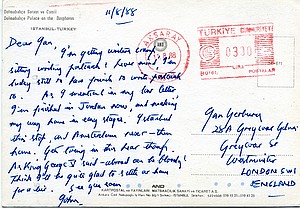 Dolmabahçe Sarayı ve Camii
Dolmabahçe Palace on the Bosphorus
İSTANBUL-TURKEY
11/8/88
AKSARAY
TÜRKİYE CUMHURİYETİ
0330
POSTALARI
Dear Jan,
I'm getting writer's cramp
sitting writing postcards! Never mind, I'm
lucky still to have friends to write postcards
to. As I mentioned in my last letter
I'm finished in Jordan now, and making
my way home in easy stages. Istanbul
this stop, and Amsterdam next - then
home. Get going in dear
As King George V said - abroad can be bloody!
Think I'll be quite glad to settle at home
for a bit. See you soon
John.
Jan Gerbury
28A Greycoat Gdns
Greycoat St
Westminster
LONDON SW1
ENGLAND
AND
KARTPOSTAL ve YAYINLARI, MATBAACILIK SANAYİ ve TİCARET A.Ş.